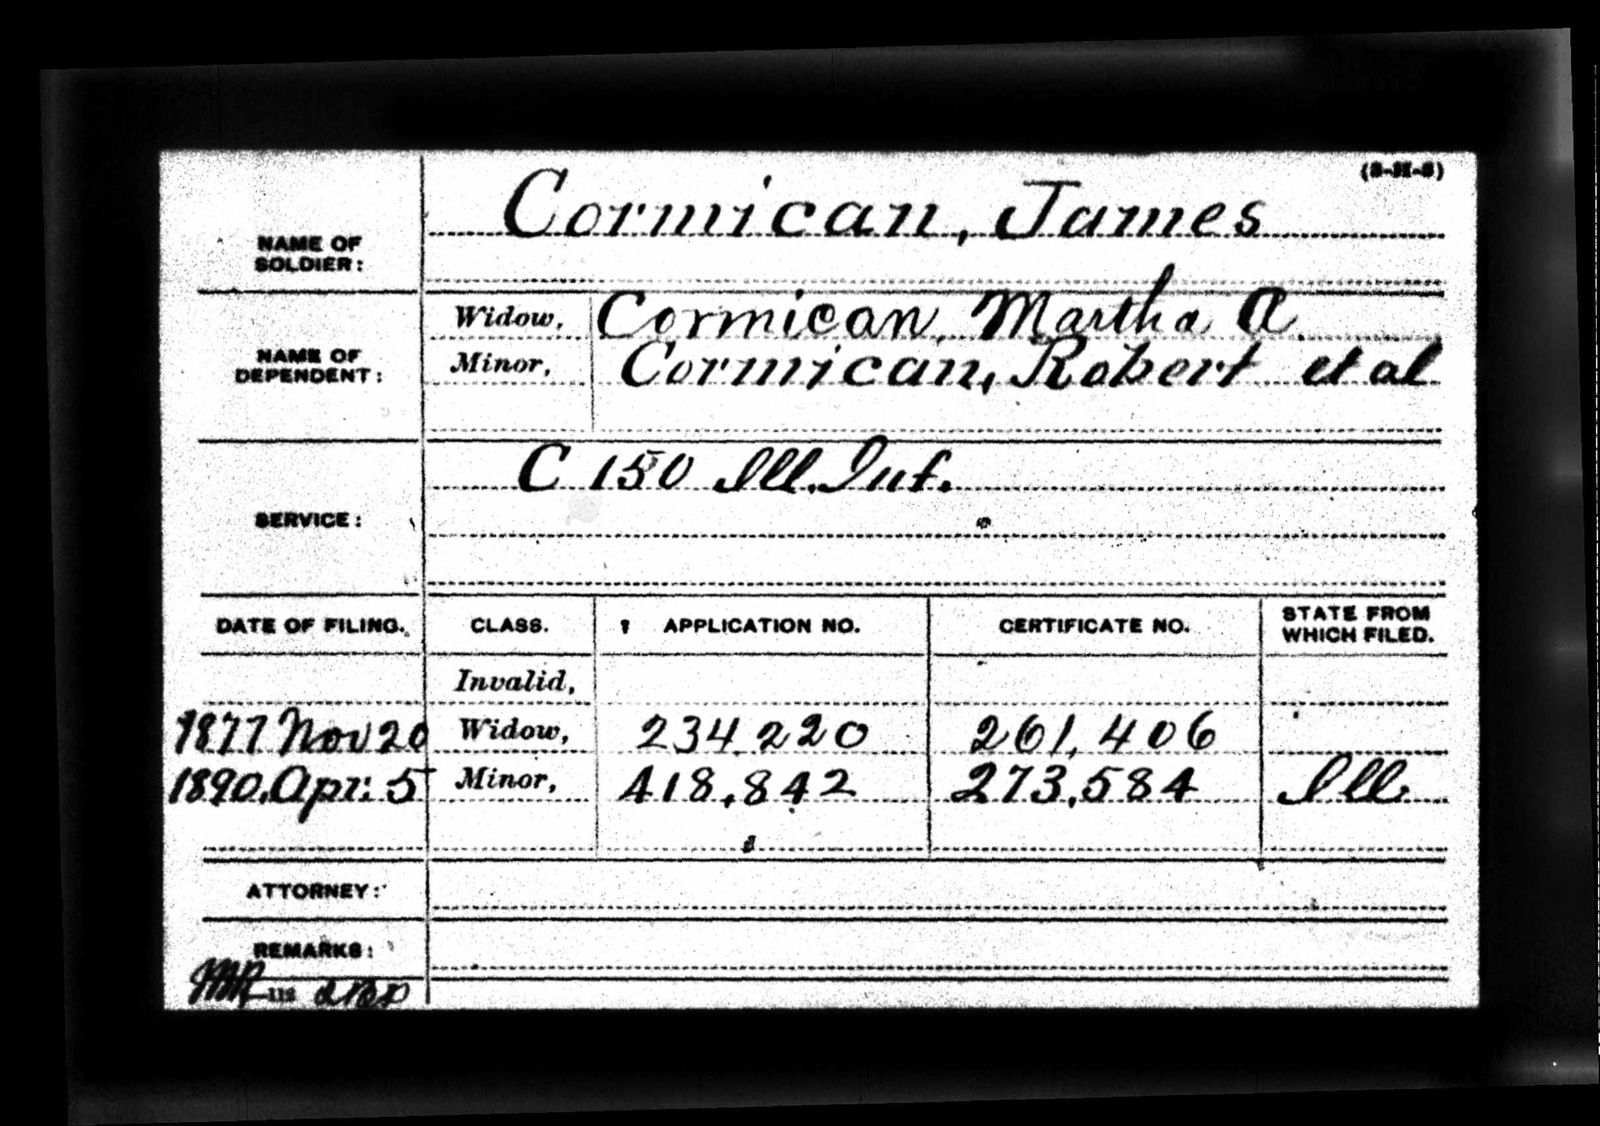 (3-H-3)
NAME OF SOLDIER: Cormican, James
NAME OF DEPENDENT: Widow, Cormican, Martha A.
Minor, Cormican, Robert et al
SERVICE: C 150 Ill. Inf.
DATE OF FILING. CLASS. APPLICATION NO. CERTIFICATE NO. STATE FROM WHICH FILED.
Invalid,
1877 Nov 20 Widow, 234,220 261,406
1890, Apr. 5 Minor, 418,842 273,584 Ill.
ATTORNEY:
REMARKS: